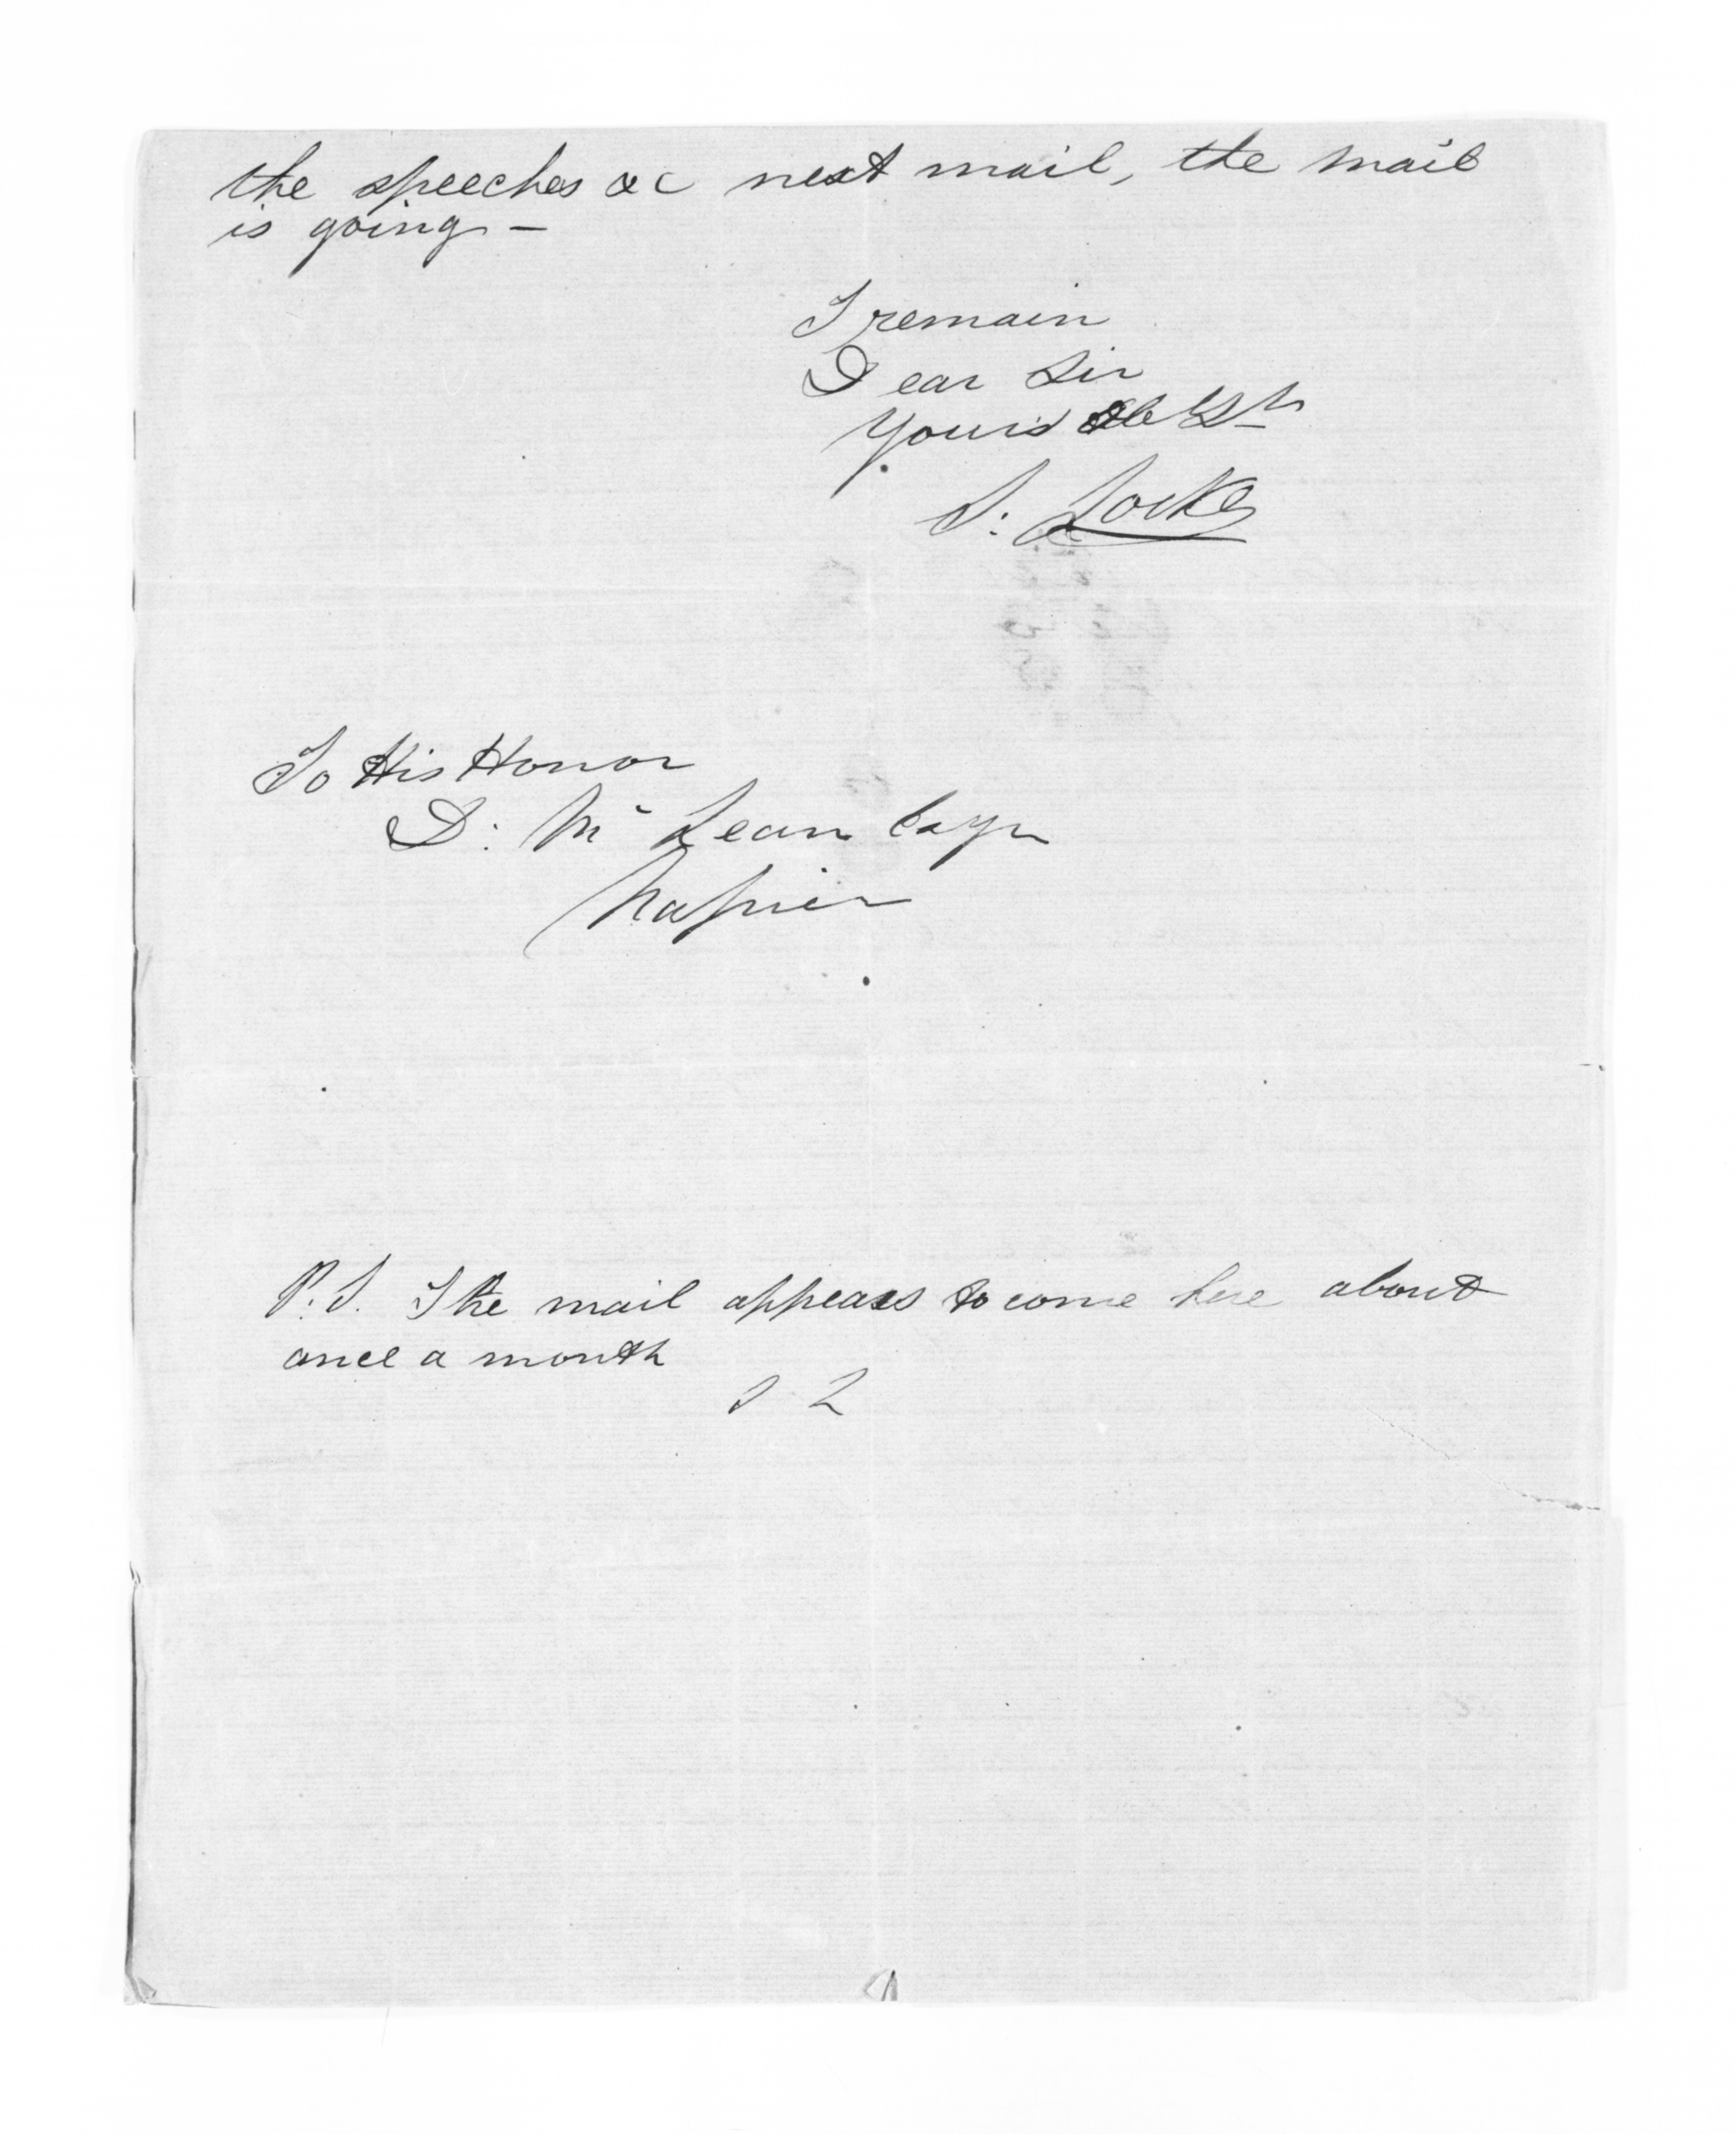 the speeches &c next mail, the mail
is going -
I remain
Dear Sir
Yours Ob St
S. Locke
To His Honor
D. McLean Esqr
Napier
P.S. The mail appears to come here about
once a month
S L